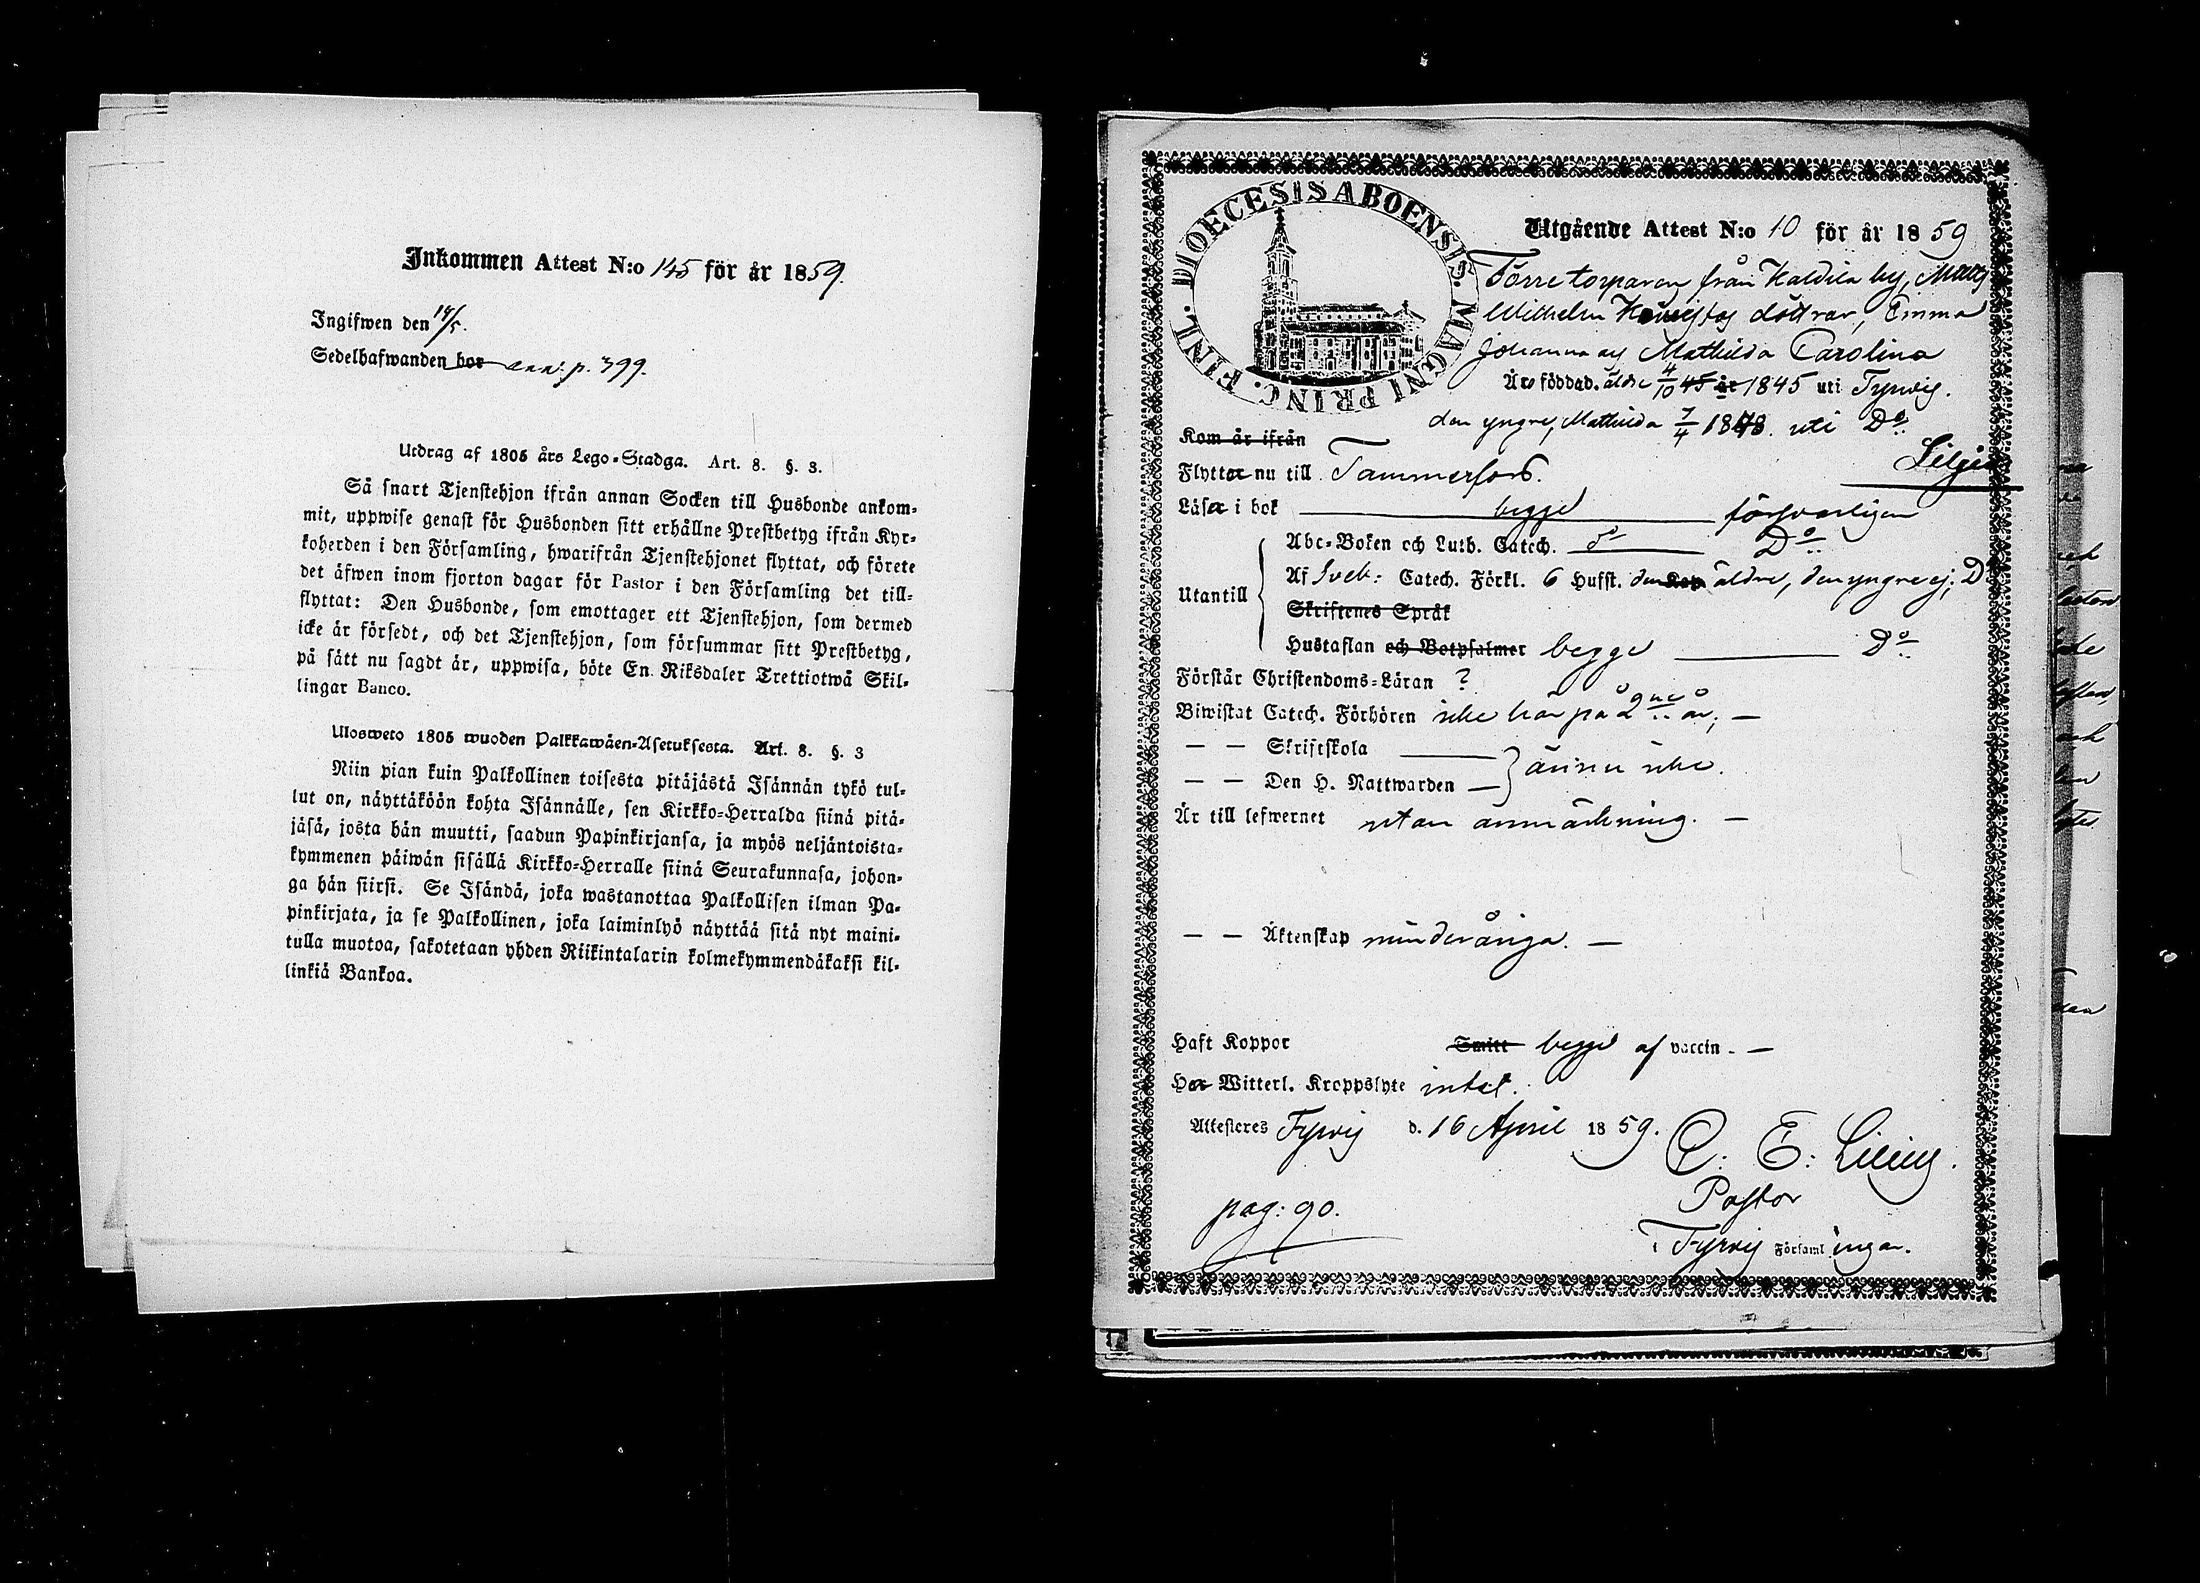 Inkommen Attest N:o 145 för år 1859.
Ingifwen den 14/5.
Sedelhafwanden bor ann: p. 399.
Utdrag af 1805 års Lego-Stadga. Art. 8. §. 3.
Så snart Tjenstehjon ifrån annan Socken till Husbonde ankom-
mit, uppwise genast för Husbonden sitt erhållne Prestbetyg ifrån Kyr-
koherden i den Församling, hwarifrån Tjenstehjonet flyttat, och förete
det äfwen inom fjorton dagar för Pastor i den Församling det till-
flyttat: Den Husbonde, som emottager ett Tjenstehjon, som dermed
icke är försedt, och det Tjenstehjon, som försummar sitt Prestbetyg,
på sätt nu sagdt är, uppwisa, böte En Riksdaler Trettiotwå Skil-
lingar Banco.
Ulosweto 1805 wuoden Palkkawäen-Asetuksesta. Art. 8. §. 3
Niin pian kuin Palkollinen toisesta pitäjästä Isännän tykö tul-
lut on, näyttäköön kohta Isännälle, sen Kirkko-Herralda siinä pitä-
jäsä, josta hän muutti, saadun Papinkirjansa, ja myös neljäntoista-
kymmenen päiwän sisällä Kirkko-Herralle siinä Seurakunnasa, johon-
ga hän siirsi. Se Isändä, joka wastanottaa Palkollisen ilman Pa-
pinkirjata, ja se Palkollinen, joka laiminlyö näyttää sitä nyt maini-
tulla muotoa, sakotetaan yhden Riikintalarin kolmekymmendäkaksi kil-
linkiä Bankoa.
DIOECESIS ABOENSIS. MAGNI PRINC. FINL.
Utgående Attest N:o 10 för år 1859
Förre torparen från Kaldila by, Matts
Wilhelm döttrar, Emma
Johanna och Mathilda Carolina
Äro födda d. äldre 4/10 45 år 1845 uti Tyrvis.
den yngre, Mathilda 7/4 1848. uti Do
Kom är ifrån
Flytta nu till Tammerfors.
Läsa i bok begge försvarligen
Utantill
Abc-Boken och Luth. Catech. Do
Af Sveb: Catech. Förkl. 6 Hufst. den äldre, den yngre ej; D
Skriftenes Språk
Hustaflan och Botpsalmer begge Do
Förstår Christendoms-Läran ?
Biwistat Catech. Förhören icke här på 2ne år; —
— — Skriftskola
— — Den H. Nattwarden — } ännu icke.
Är till lefwernet utan anmärkning. —
— — Äktenskap minderåriga. —
Haft Koppor Smitt begge af vaccin. —
Har Witterl. Kroppslyte intet.
Attesteres Tyrvis d. 16 April 1859.
C. E: Lilius.
Pastor
i Tyrvis Församlingar.
pag: 90.